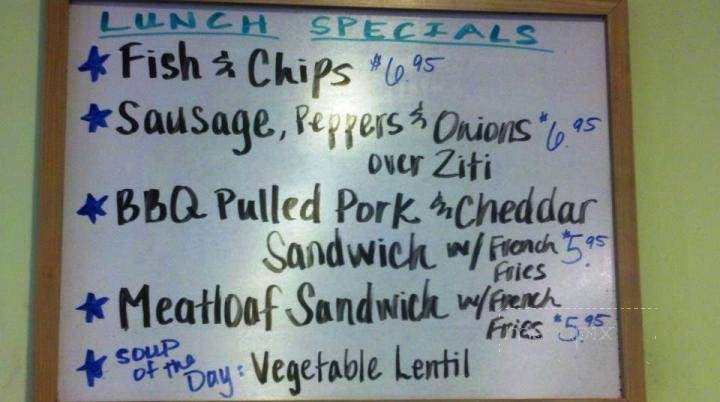 LUNCH SPECIALS
★ Fish & Chips $6.95
★ Sausage, Peppers & Onions $6.95
over Ziti
★ BBQ Pulled Pork & Cheddar
Sandwich w/ French $5.95
Fries
★ Meatloaf Sandwich w/ French
Fries $5.95
★ SOUP
OF the
Day: Vegetable Lentil